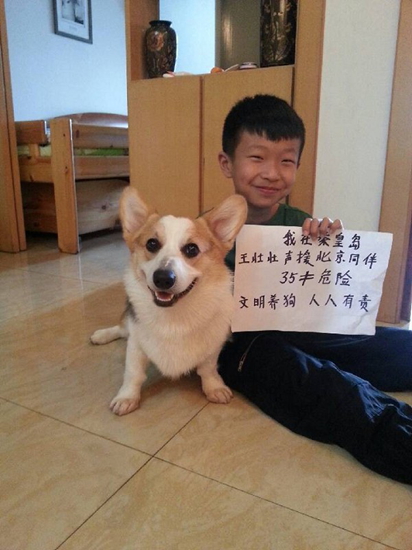 我在秦皇岛
王壮壮声援北京同伴
35≠危险
文明养狗 人人有责